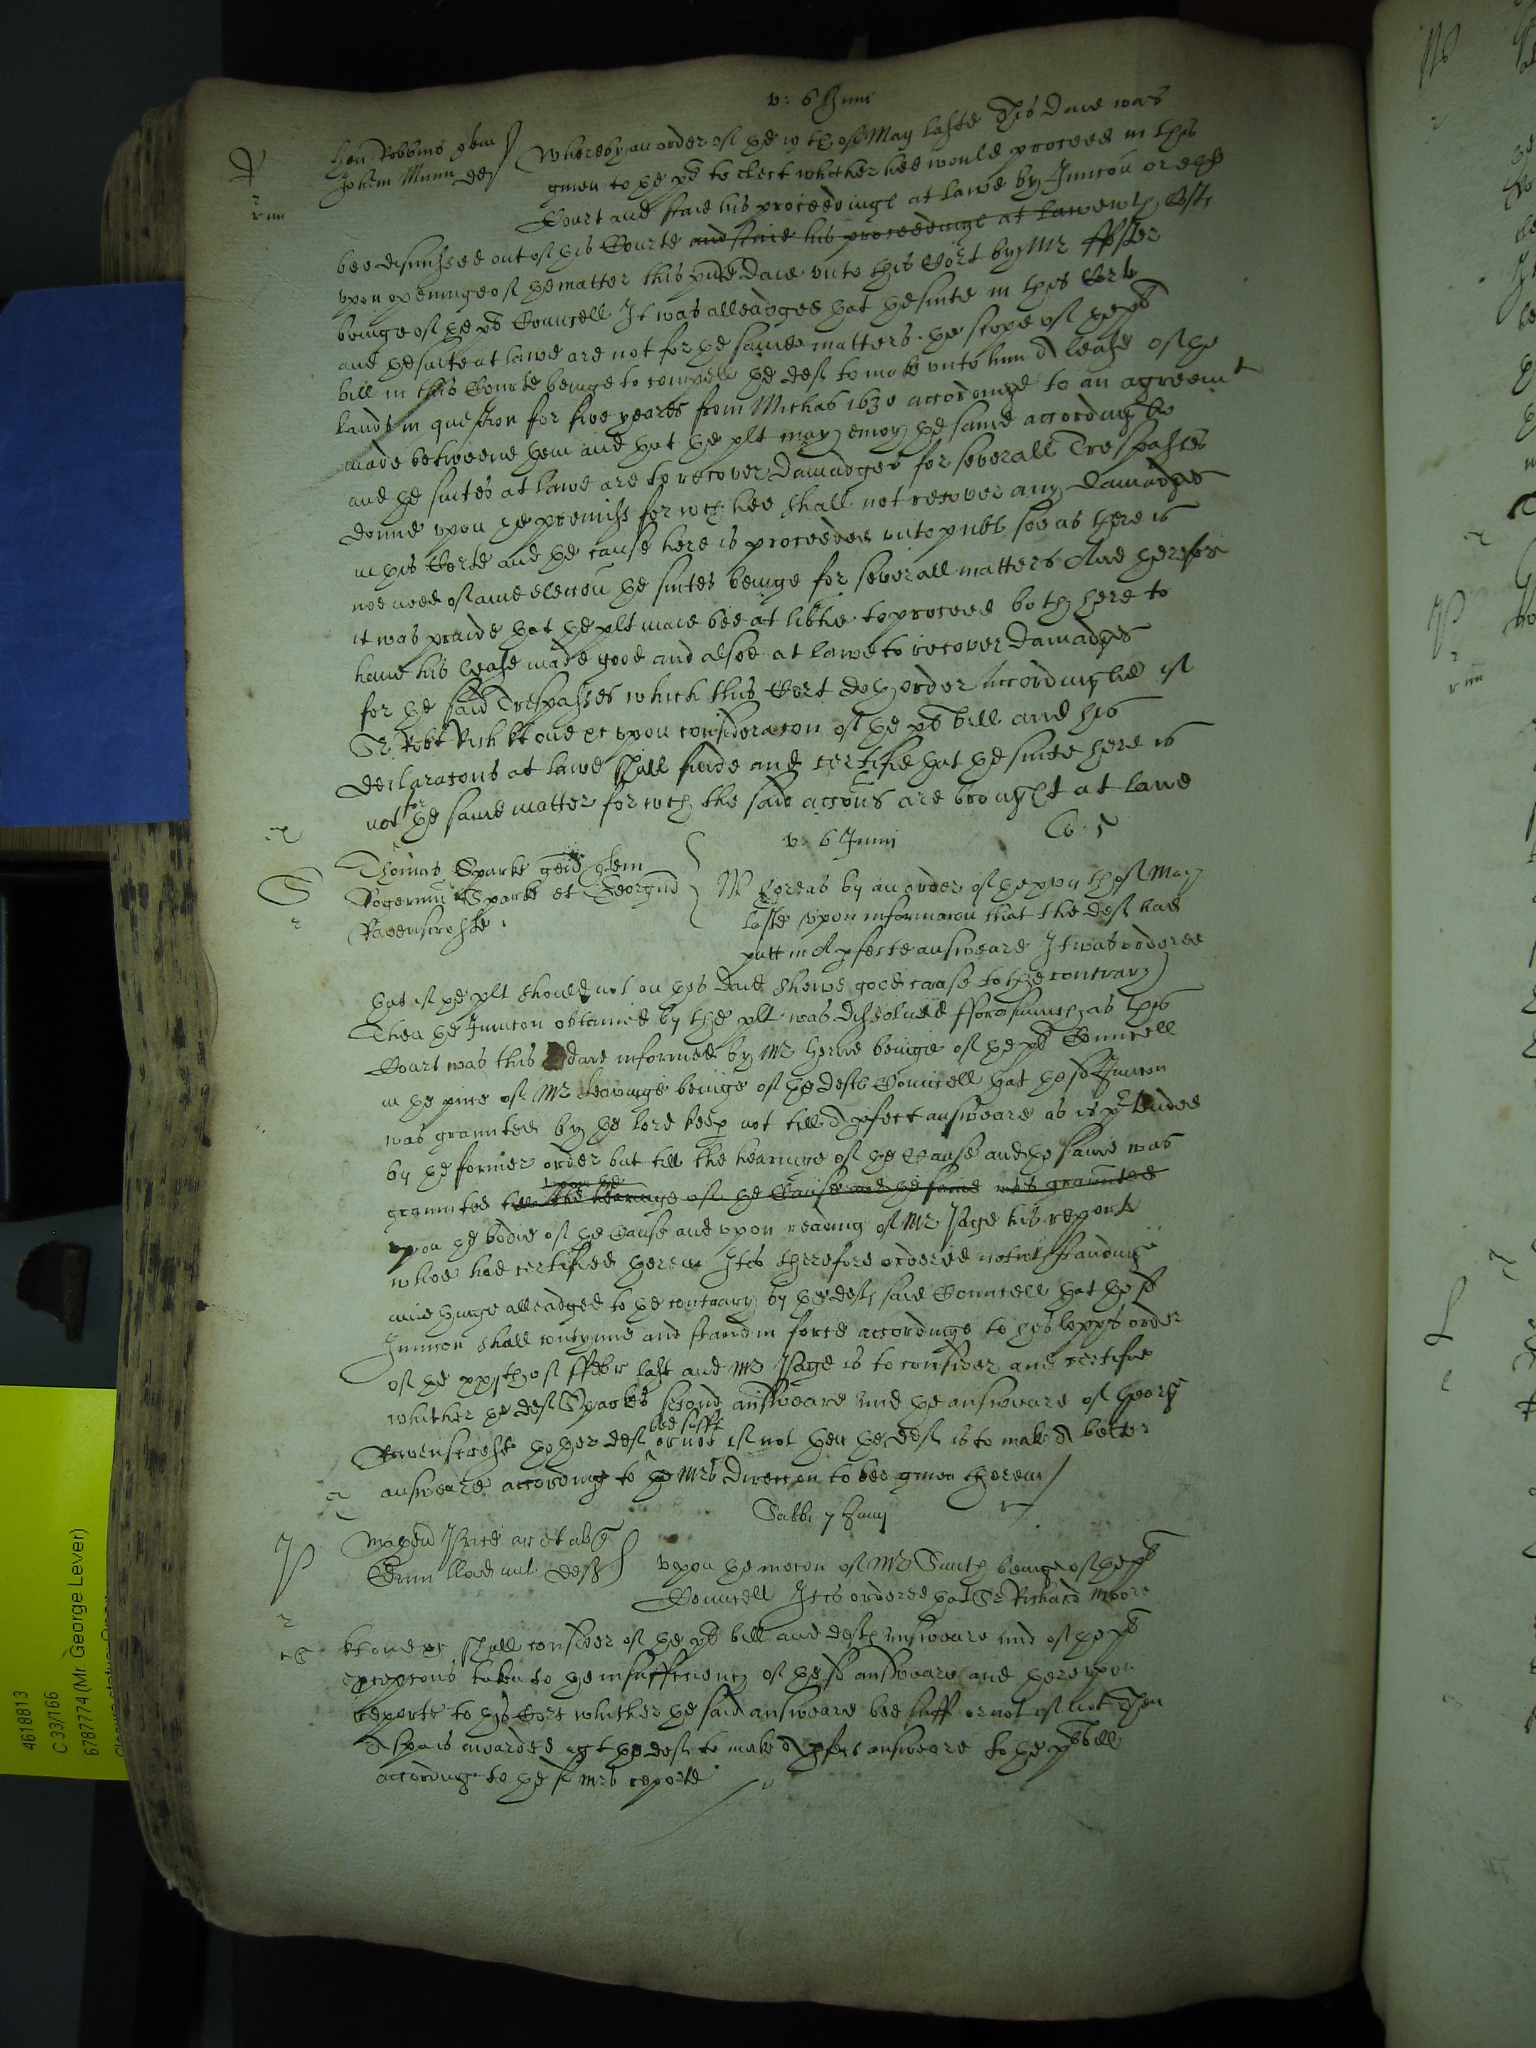 v: 6 Junii
Hen Robbins quer
Johem Munn def
Whereby an order of the 19th of May laste This daie was
given to the plt to elect whether hee would proceed in this
Court and staie his proceedinge at lawe by Junccon or els
bee dismissed out of this Courte and staie his proceedinge at lawe wth Costs
upon openinge of the matter this pnte daie unto this Cort by Mr ffoster
beinge of the plts Councell It was alleadged that the suite in this Cort
and the suite at lawe are not for the same matters. the scope of the plts
bill in this Courte beinge to compell the deft to make unto him A lease of the
lands in question for five yeares from Michas 1630 accordinge to an agreemt
made betweene them and that the plt may enioy the same accordinglie
and the suites at lawe are to recover damadges for severall Trespasses
donne upon the premiss for wch hee shall not recover any damadges
in this Corte and the cause here is proceeded unto publ soe as there is
noe need of anie eleccon the suites beinge for severall matters And therefore
it was praide that the plt maie bee at libtie to proceed both here to
have his lease made good and alsoe at lawe to recover damadges
for the said Trespasses which this Cort doth order accordinglie if
Sr Robt Rich kt one &c upon consideracon of the plts bill and his
declaracons at lawe shall finde and certifie that the suite here is
not for the same matter for wch the said accons are brought at lawe
v: 6 Junii
Thomas Sparke gen quer
Rogerum Sparke et Georgiu
Ravenscrofte
Whereas by an order of the xviijth of May
laste upon informacon that the deft had
putt in A pfecte answeare It was ordered
that if the plt should not on this daie shewe good cause to the contrary
Then the Junccon obtained by the plt was dissolved fforasmuch as this
Court was this daie informed by Mr Herne beinge of the plts Councell
in the pnce of Mr Keeinge beinge of the defts Councell that the sd Junccon
was graunted by the lord keep not till A pfect answeare as is ptended
by the former order but till the hearinge of the Cause and the same was
graunted till the hearinge of the Cause and the same was graunted
upon the
upon the bodie of the Cause and upon readinge of Mr Page his reporte
whoe had certified herein It is therefore ordered notwithstandinge
anie thinge alleadged to the contrary by the defts said Councell that the sd
Junccon shall contynue and stand in force accordinge to his lopps order
of the xxjth of ffebr last and Mr Page is to consider and certifie
whither the deft Sparkes second answeare and the answeare of Georg
Ravenscrofte thother deft bee sufft or not if not then the deft is to make A better
answeare accordinge to the Mrs direccon to bee given therein
Sabbti 7 Junij
Price ar et al quer
Lloid mil deft
Upon the mocon of Mr Smith beinge of the plts
Councell It is ordered that Sr Richard Moore
kt one &c shall consider of the plts bill and defts answeare and of the plts
excepcons taken to the insufficiency of the sd answeare and thereupon
reporte to this Cort whither the said answeare bee suff or not if not Then
A spa is awarded agt the deft to make A pfect answeare to the plts bill
accordinge to the sd Mrs reporte
4618813
C 33/166
6787774 (Mr. George Lever)